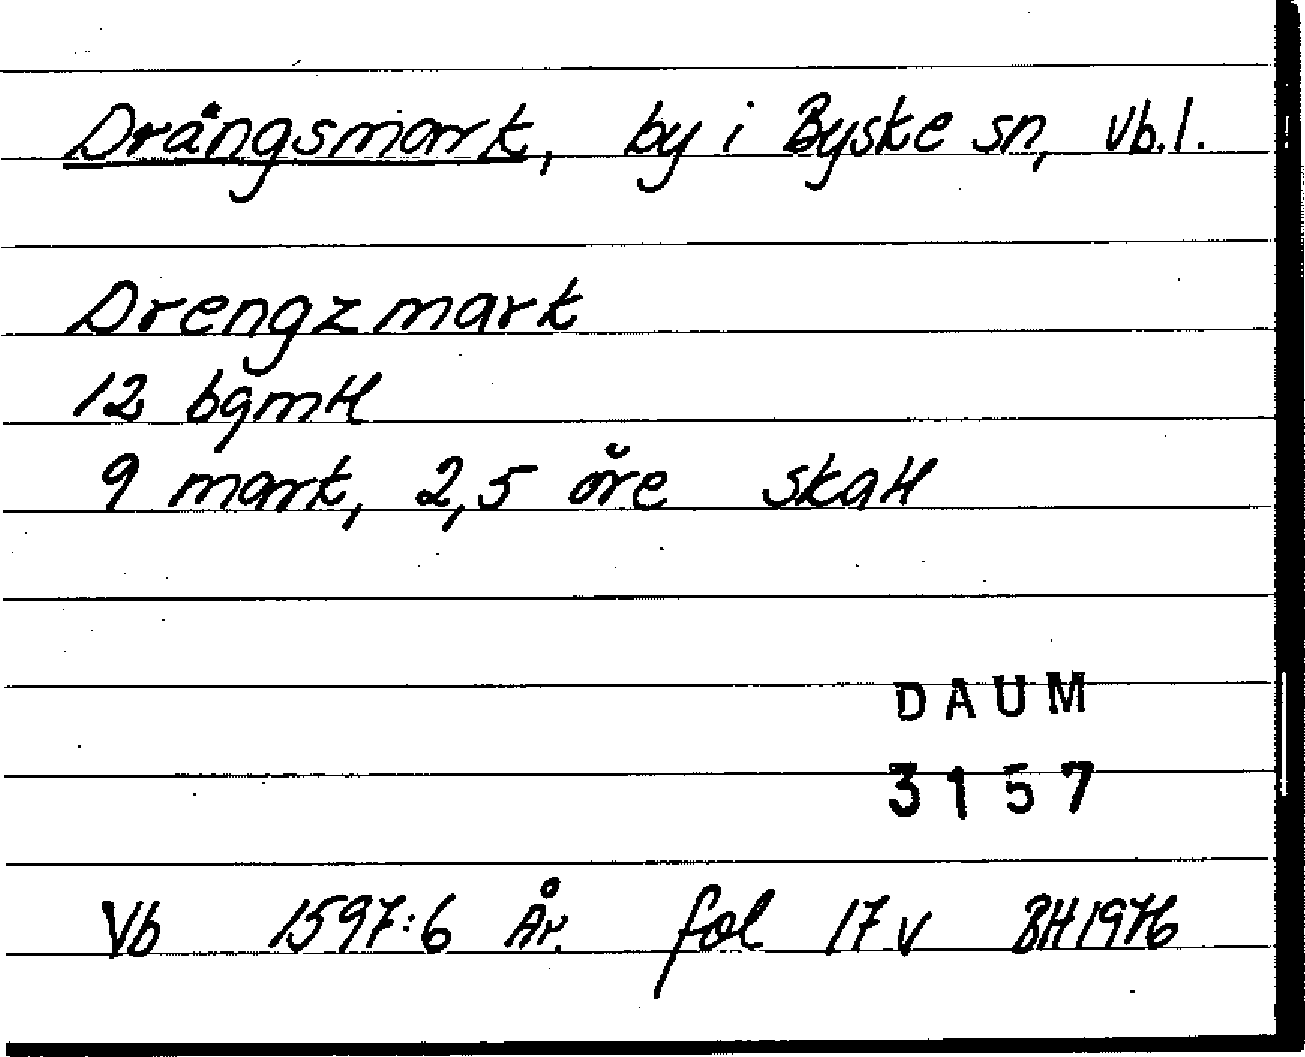 Drängsmark, by i Byske sn, Vb.l.
Drengzmark
12 bgmtl
9 mark, 2,5 öre skatt
DAUM
3157
Vb 1597:6 År. fol 17 v BH 1976